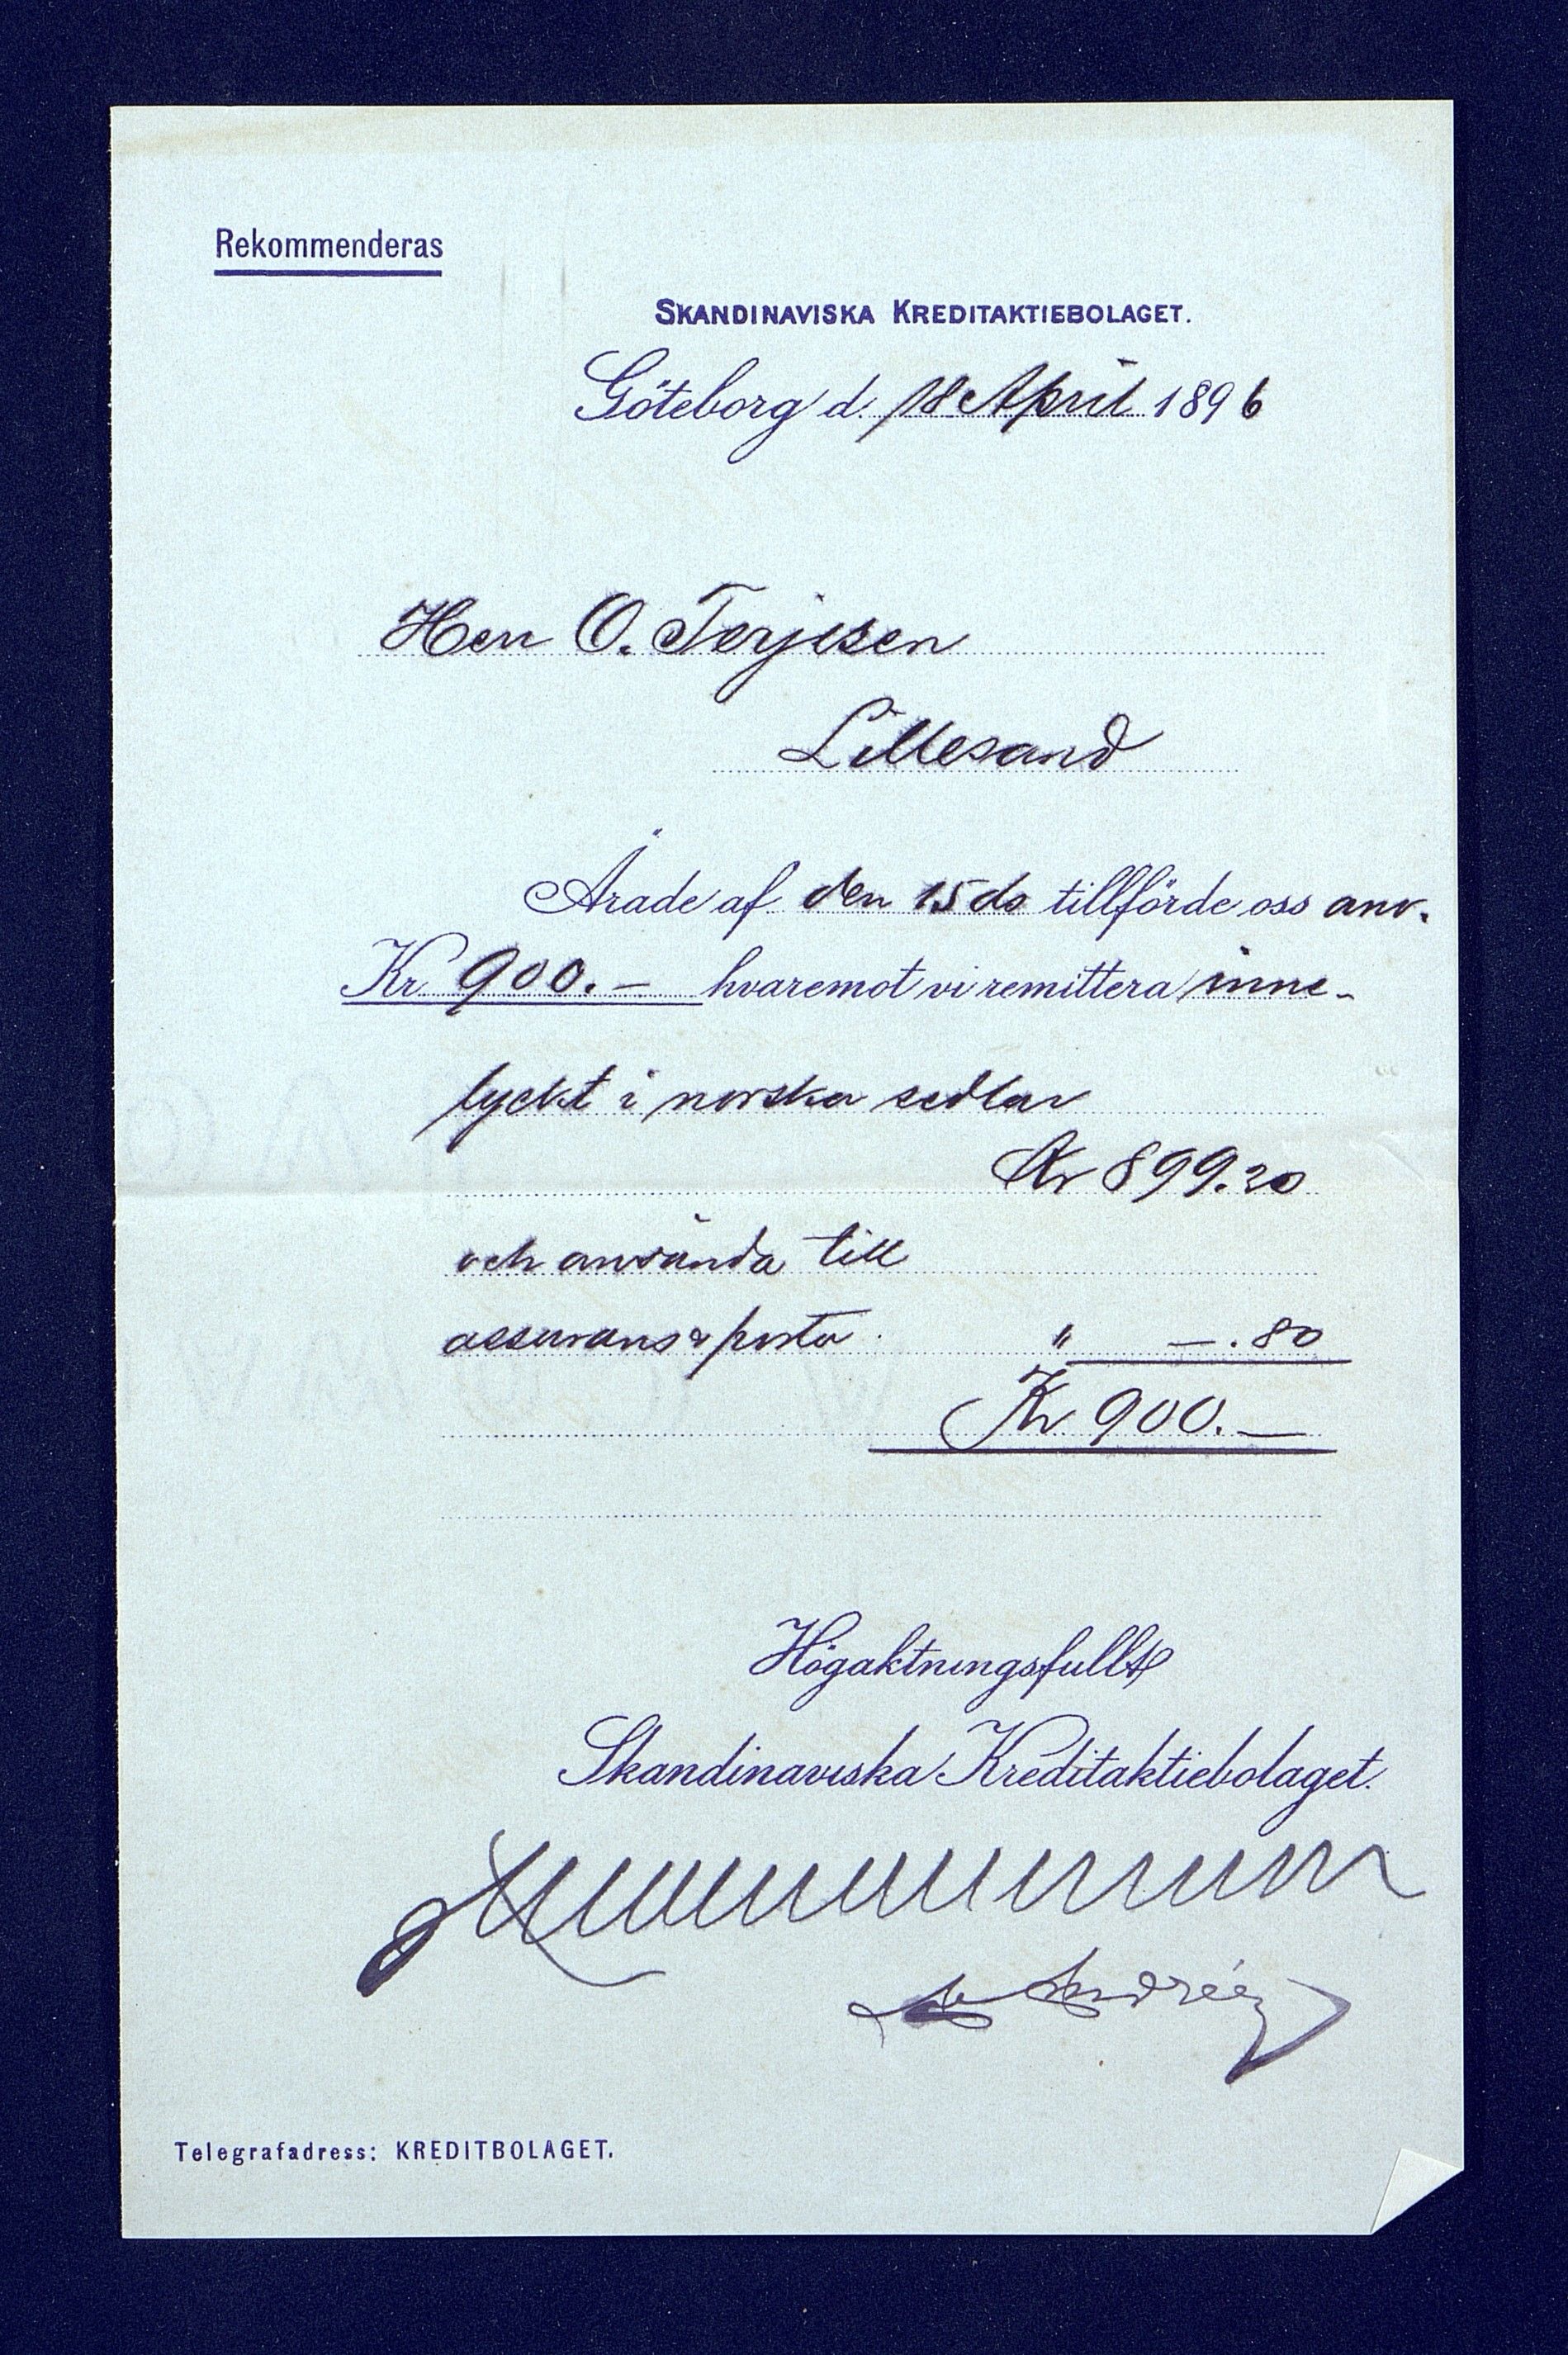 Rekommenderas
SKANDINAVISKA KREDITAKTIEBOLAGET.
Göteborg d. 18 April 1896
Herr O. Terjesen
Lillesand
Ärade af den 15 ds tillförde oss anv.
Kr 900.— hvaremot vi remittera inne-
lyckt i norska sedlar
Kr 899.20
och använda till
assurans & porto " —.80
Kr 900.—
Högaktningsfullt
Skandinaviska Kreditaktiebolaget.
Andrée
Telegrafadress: KREDITBOLAGET.